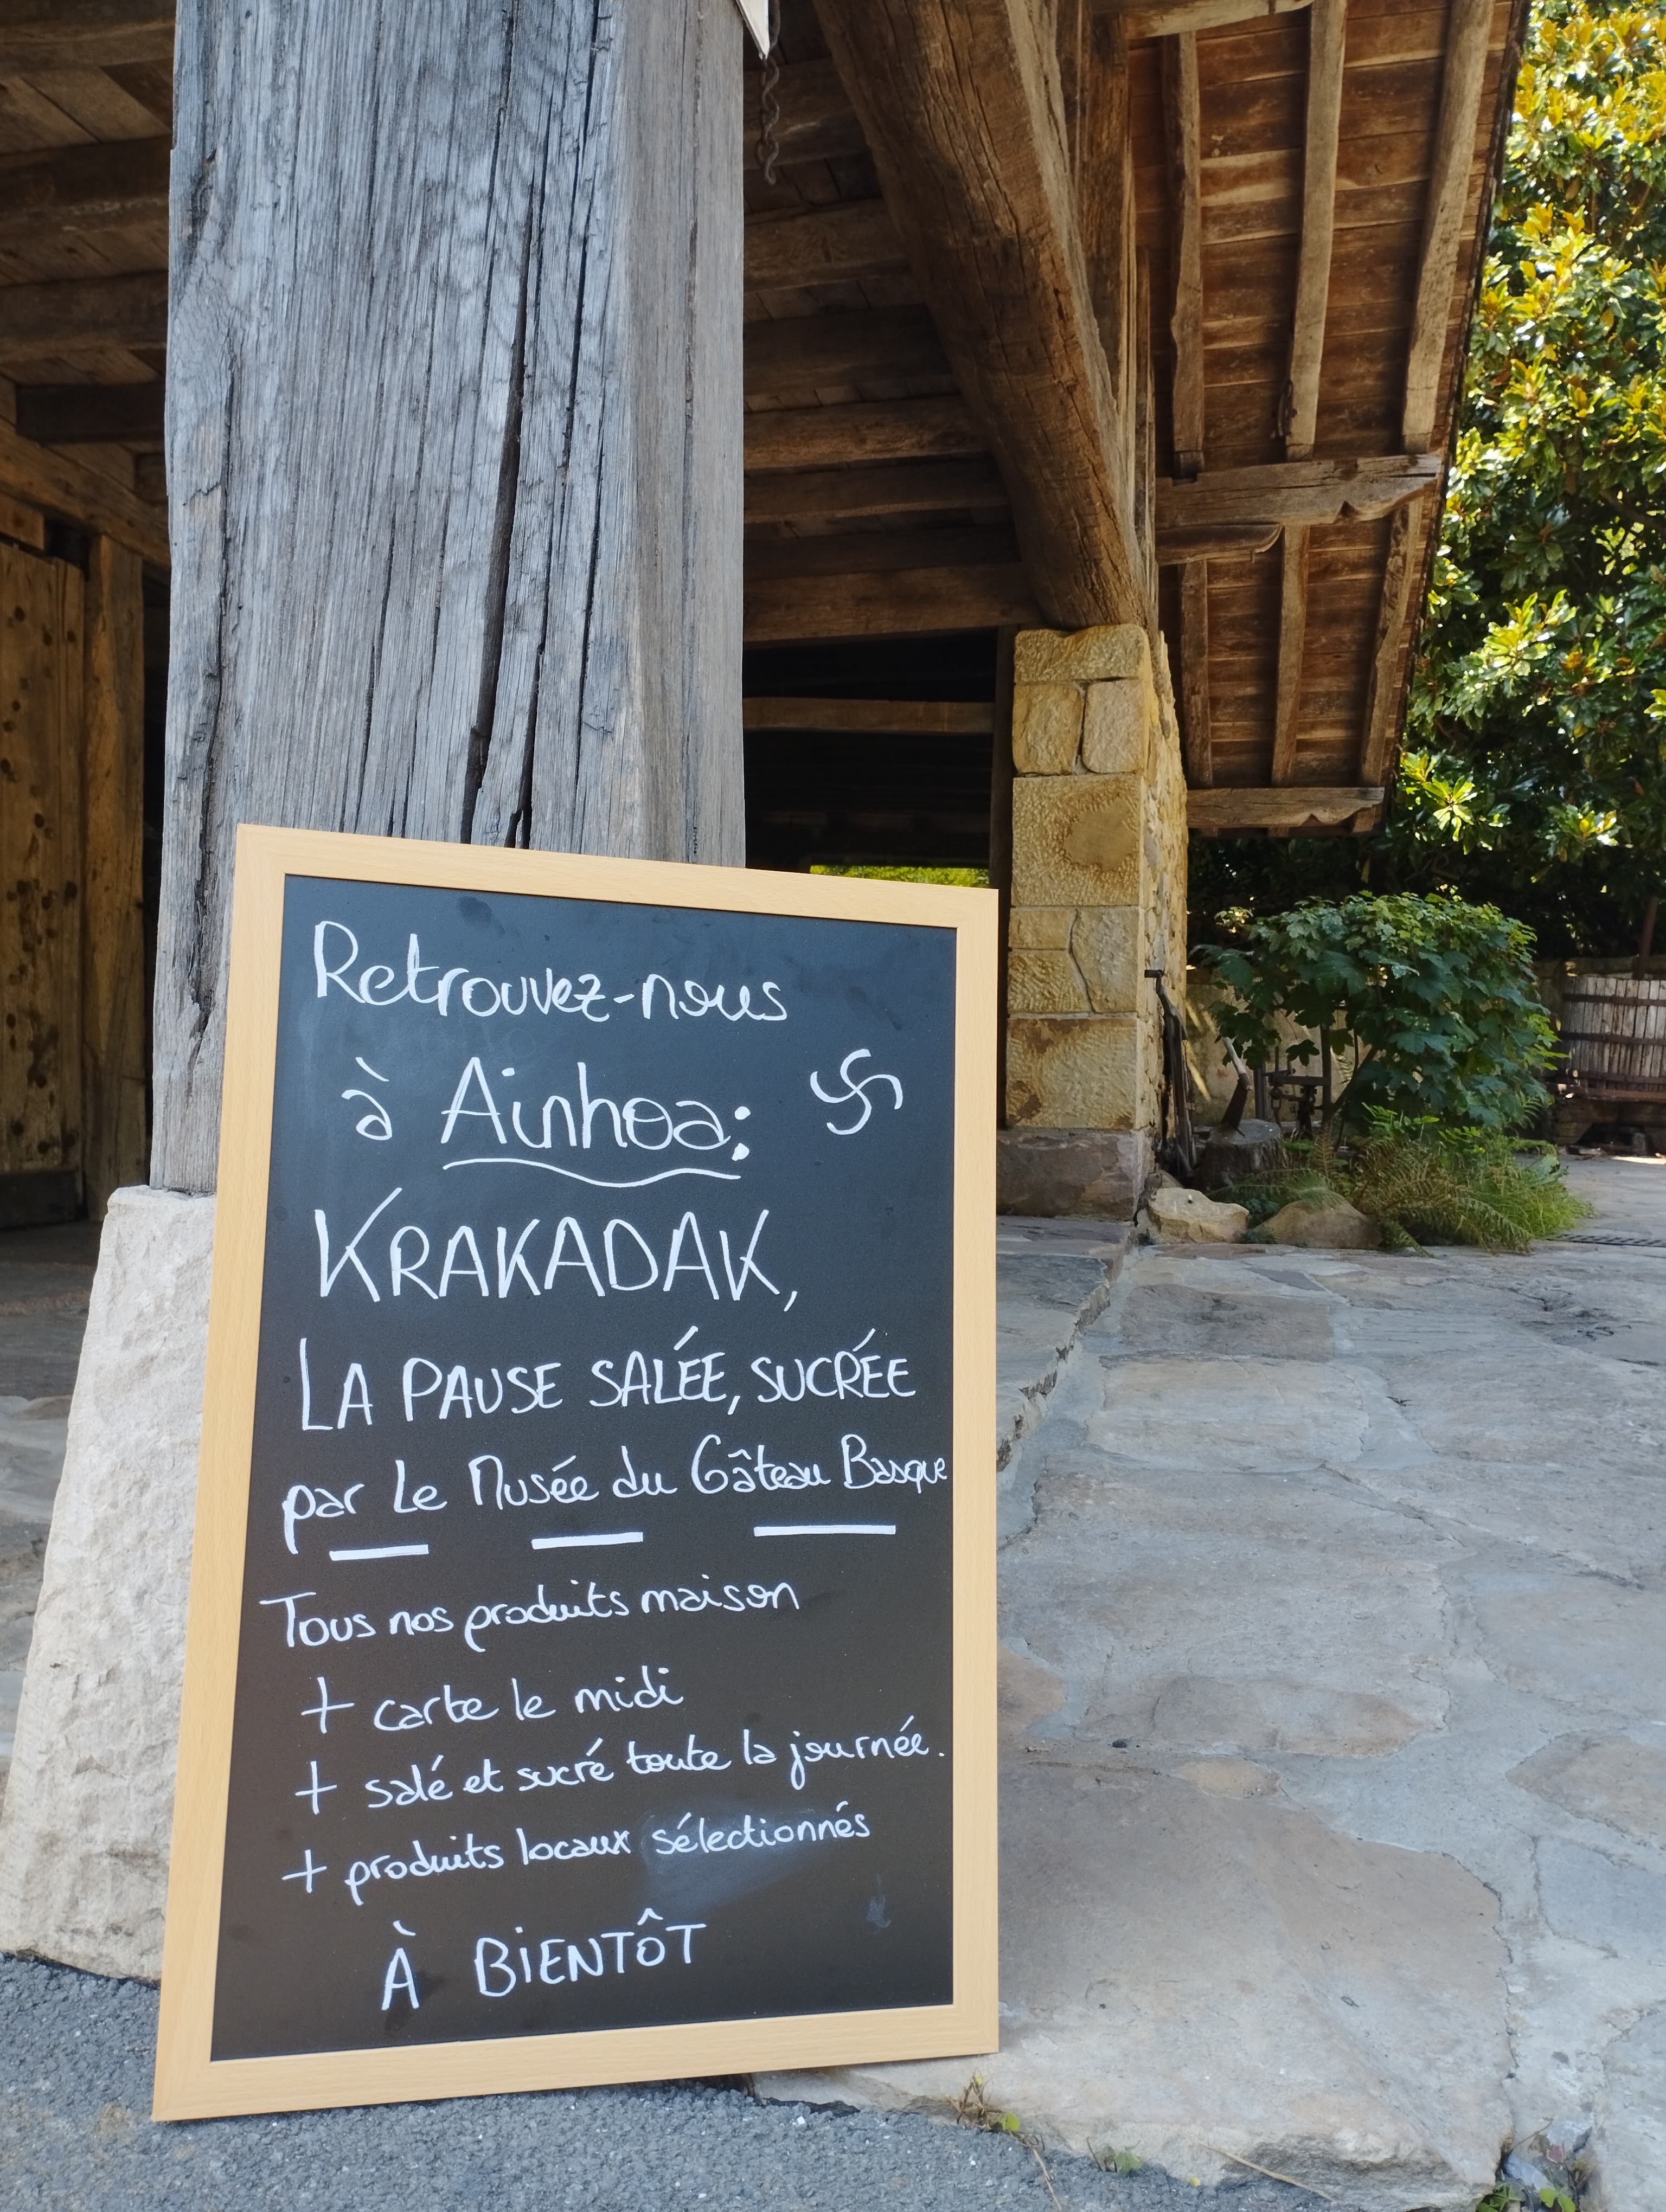 Retrouvez-nous
à Ainhoa:
KRAKADAK,
LA PAUSE SALÉE, SUCRÉE
par Le Musée du Gâteau Basque
Tous nos produits maison
+ carte le midi
+ salé et sucré toute la journée.
+ produits locaux sélectionnés
À BIENTÔT